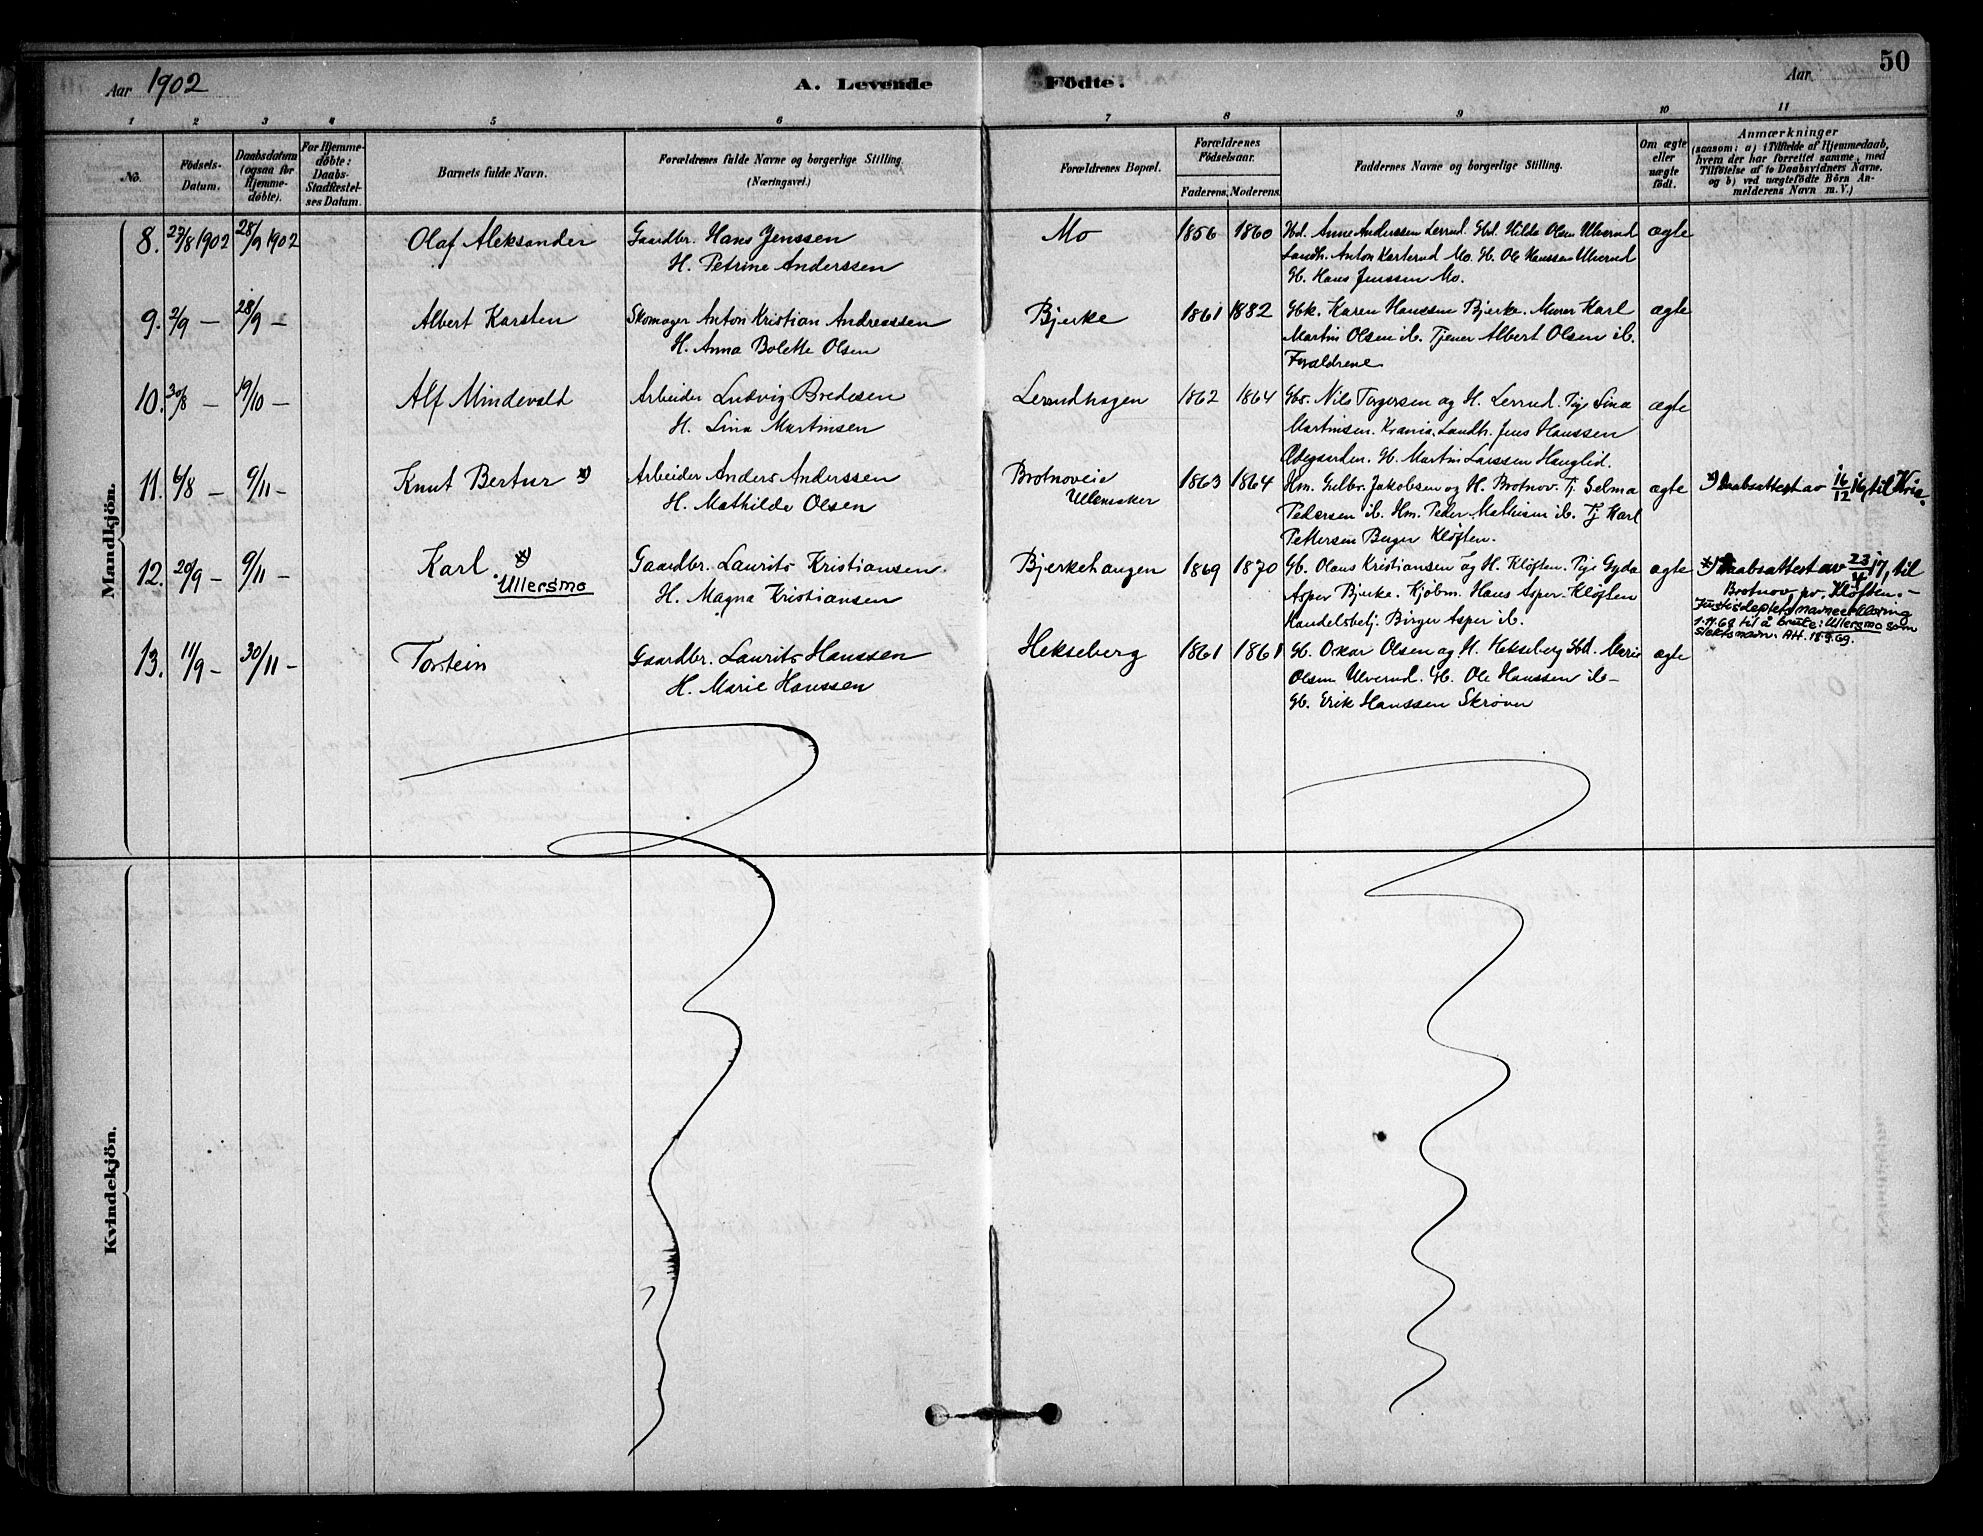 50
Aar 1902
A. Levende Födte.
Aar
1 2 3 4 5 6 7 8 9 10 11
No.
Födsels-Datum.
Daabsdatum (ogsaa for Hjemmedøbte).
For Hjemmedøbte: Daabs-Stadfæstelses Datum.
Barnets fulde Navn.
Forældrenes fulde Navne og borgerlige Stilling. (Næringsvei.)
Forældrenes Bopæl.
Forældrenes Födselsaar.
Faderens. Moderens.
Faddernes Navne og borgerlige Stilling.
Om ægte eller uægte födt.
Anmærkninger
(saasom: a) i Tilfælde af Hjemmedaab, hvem der har forrettet samme, med Tilføielse af to Daabsvidners Navne, og b) ved uægtefödte Börn Anmelderens Navn m. V.)
Mandkjön.
8. 27/8 1902 28/9 1902 Olaf Aleksander Gaardbr. Hans Jenssen Mo 1856 1860 Gbd. Anne Anderssen Lerrud. Gbd. Hilda Olsen Ulverud ægte
H. Petrine Anderssen Landh. Anton Karterud Mo. G. Ole Hanssen Ulverud
G. Hans Jenssen Mo.
9. 2/9 — 28/9 — Albert Karsten Skomager Anton Kristian Andreassen Bjerke 1861 1882 Gbk. Karen Hanssen Bjerke. Murer Karl ægte
H. Anna Bolette Olsen Martin Olsen ib. Tjener Albert Olsen ib.
Forældrene
10. 30/8 — 19/10 — Alf Mindevald Arbeider Ludvig Bredesen Lerrudhagen 1862 1864 Gbr. Nils Torgersen og H. Lerrud. Pige Lina ægte
H. Lina Martinsen Martinsen. Krania. Landh. Jens Hanssen
G. Martin Larssen Hauglid.
11. 6/8 — 9/11 — Knut Bertur x) Arbeider Anders Anderssen Brotnoveie 1863 1864 Hm. Gulbr. Jakobsen og H. Brotnov. Tj. Selma ægte x) Daabsattest av 16/12 16, til Kria.
H. Mathilde Olsen Ullensaker Pedersen ib. Hm. Peder Mathisen ib. Tj Karl
Pettersen Berger Kløften.
12. 20/9 — 9/11 — Karl x) Gaardbr. Laurits Kristiansen. Bjerkehaugen 1869 1870 G. Olaus Kristiansen og H. Kløften. Pige Gyda ægte x) Daabsattest av 23/4 17, til
Ullersmo H. Magna Kristiansen Asper Bjerke. Kjøbm. Hans Asper. Kløften Brotnov pr. Kløften. —
Handelsbetj. Birger Asper ib. Justisdeptets navneerklæring
1.9.69 til å bruke: Ullersmo som
slektsnavn. AH. 18.9.69.
13. 11/9 — 30/11 — Torstein Gaardbr. Laurits Hanssen Hekseberg 1861 1861 G. Oskar Olsen og H. Hekseberg Gbd. Marie ægte
H. Marie Hanssen Olsen Ulverud. G. Ole Hanssen ib —
G. Erik Hanssen Skrøver
Kvindekjön.